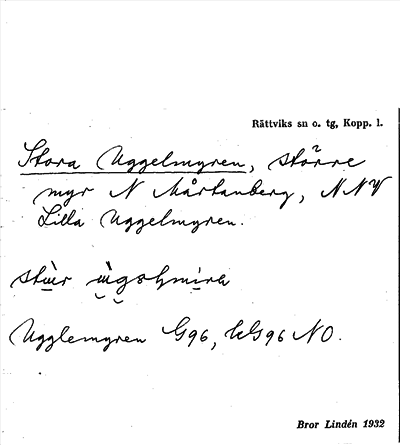 Rättviks sn o. tg, Kopp. l.
Stora Uggelmyren, större
myr N Mårtanberg, NNV
Lilla Uggelmyren.
Ugglemyren G96, NO.
Bror Lindén 1932